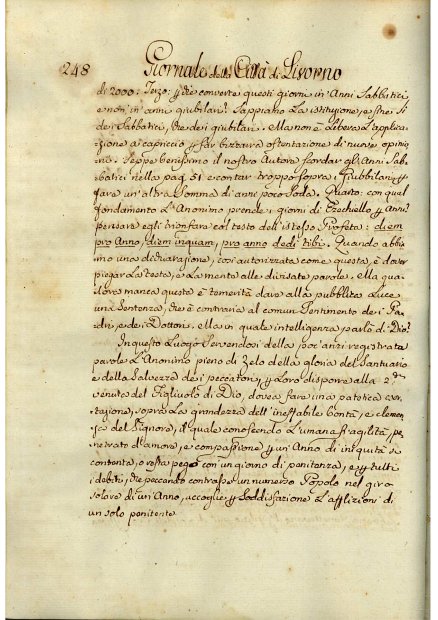 248 Giornale della Città di Livorno
di 2000: Terzo: che converte questi giorni in Anni Sabbatici,
e non in anni giubilari? Sappiamo La istituzione, e fine sì
dei Sabbatici, che dei giubilari. Ma non è Libera L'applica-
zione a capriccio far bizzarra ostentazione di nuove opinio
ni. Seppe benissimo il nostro Autore scordar gl'Anni Sab-
batici nella pag. 51 e contar troppo sopra i Giubbilari
fare un'altra somma di anni poco soda. Quarto: con qual
fondamento L'Anonimo prende i giorni di Ezechiello Anni?
pensare egli trionfare col testo dell'istesso Profeta: diem
pro Anno, diem inquam, pro anno dedi tibi. Quando abbi-
amo una dichiarazione, così autorizzata come questa, è dover
piegar La testa, e La mente alle divisate parole. Ma qua-
lora manca questa è temerità dare alla pubblica Luce
una Sentenza, che è contraria al comun Sentimento dei Pa-
dri, e dei Dottori. Ma in quale intelligenza parlò Dio?
In questo Luogo servendosi della poc'anzi registrata
parole L'Anonimo pieno di zelo della gloria del Santuario
e della Salvezza dei peccatori, Loro disporre alla 2.da
venuta del Figliuolo di Dio, dovea fare una patetica esor-
tazione, sopra La grandezza dell'ineffabile bontà, e clemen-
za del Signore, il quale conoscendo L'umana fragilità, pe-
netrato d'amore, e compassione un'Anno di iniquità si
contenta, e resta pago con un giorno di penitenza, e tutti
i debiti, che peccando contrasse un numeroso Popolo nel giro
solare di un'Anno, accoglie Soddisfazione L'afflizioni di
un solo penitente